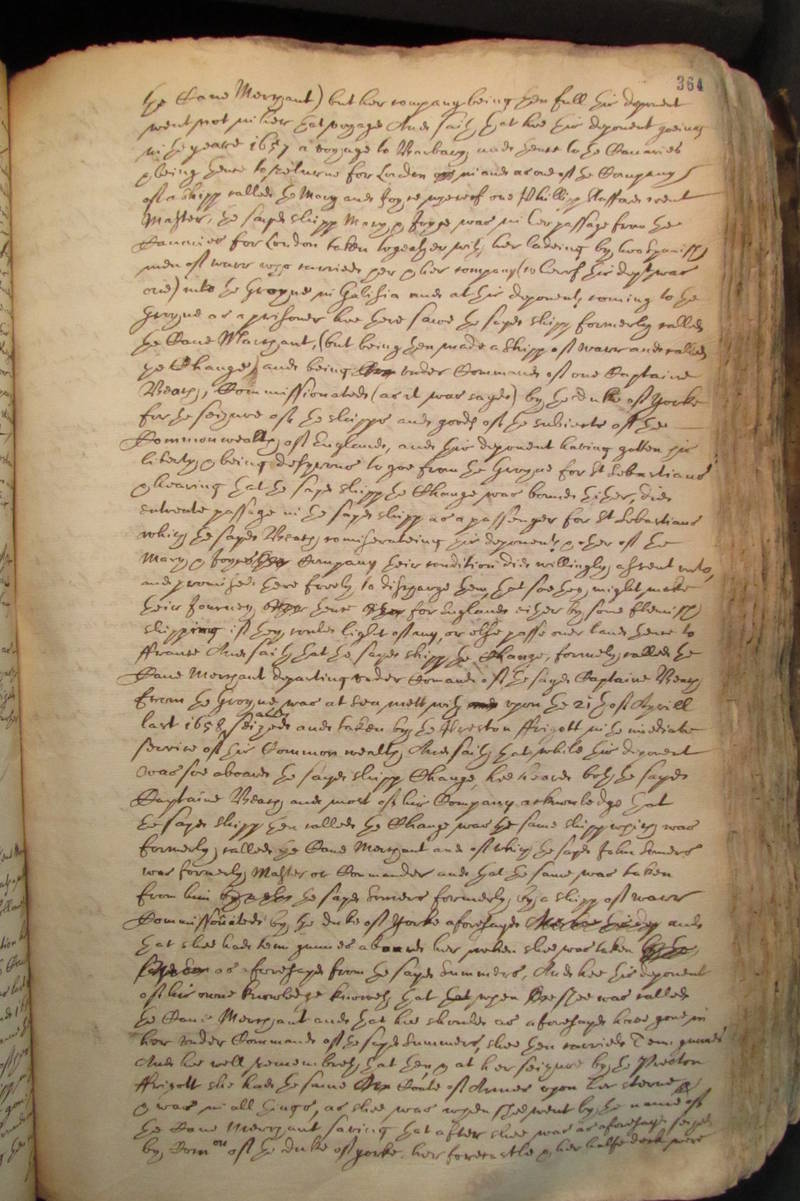 364
the Dane Merchant) but her company being then full hir deponent
went not in her that voyage And saith that hee this deponent goeing
in the yeare 1657 a voyage to Barbary and thence to the Canaries
& being thence to returne for London in and as one of the Company
of a shipp called the Mary and Joyce whereof one Phillipp Stafford went
Master, the sayd shipp Mary & Joyce was in her passage from the
Canaries for London taken together with her ladeing by two Spanish
men of warr who carried her & her company (whereof this depont was
one) into the Groyne in Galisia and at this deponents coming to the
Groyne as a prisoner hee there sawe the sayd shipp formerly called
the Dane Marchant, (but being then made a shipp of warr and called
the Change) and being under Command of one Captaine
Beach, Commissionated (as it was sayd) by the duke of Yorke
for the seizure of the shipps and goods of the subiects of the
Commonwealth of England, and this deponent having gotten his
liberty & being desyrous to goe from the Groyne for St Sebastians
& hearing that the sayd shipp the Change was bound thither, did
entreate passage in the sayd shipp as a passenger for St Sebastians
which the sayd Beach comiserateing this deponents & other of the
Mary & Joyces Company their condition did willingly assent unto,
and promised there freely to discharge them that soe they might make
their Journey thence for England either by some fflemish
shipping if they could light of any, or else passe over land thence to
ffrance And saith that the sayd shipp the Change, formerly called the
Dane Merchant departing under Comand of the sayd Captaine Beach
from the Groyne was at sea mett with upon the 21th of Aprill
last 1658 and seized and taken by the Preston ffrigott in the imediate
service of this Common wealth, And saith that while this deponent
was soe aboard the sayd shipp Change, hee heard both the sayd
Captaine Beach and most of his Company acknowledge that
the sayd shipp then called the Change was the same shipp which was
formerly called the Dane Merchant and of which the sayd John Somers
was formerly Master or Commander and that the same was taken
from him the sayd Somers formerly by a shipp of warr
Commissionated by the duke of Yorke aforesayd and
that shee had tenn gunnes aboard her when shee was taken
as aforesayd from the sayd Summers, And hee this deponent
of his owne knowledge knoweth that when shee was called
the Dane Merchant and that hee should as aforesayd have gone in
her under Command of the sayd Summers, shee then carried Tenn gunnes
And hee well remembreth that then & at her seizure by the Preston
ffrigott she had the same Coate of Armes upon her sterne
& was in all things, as shee was when shee went by the name of
the Dane Merchant saving that after shee was as aforesayd seized
by Comon of the duke of Yorke her forecastle & her halfe deck were